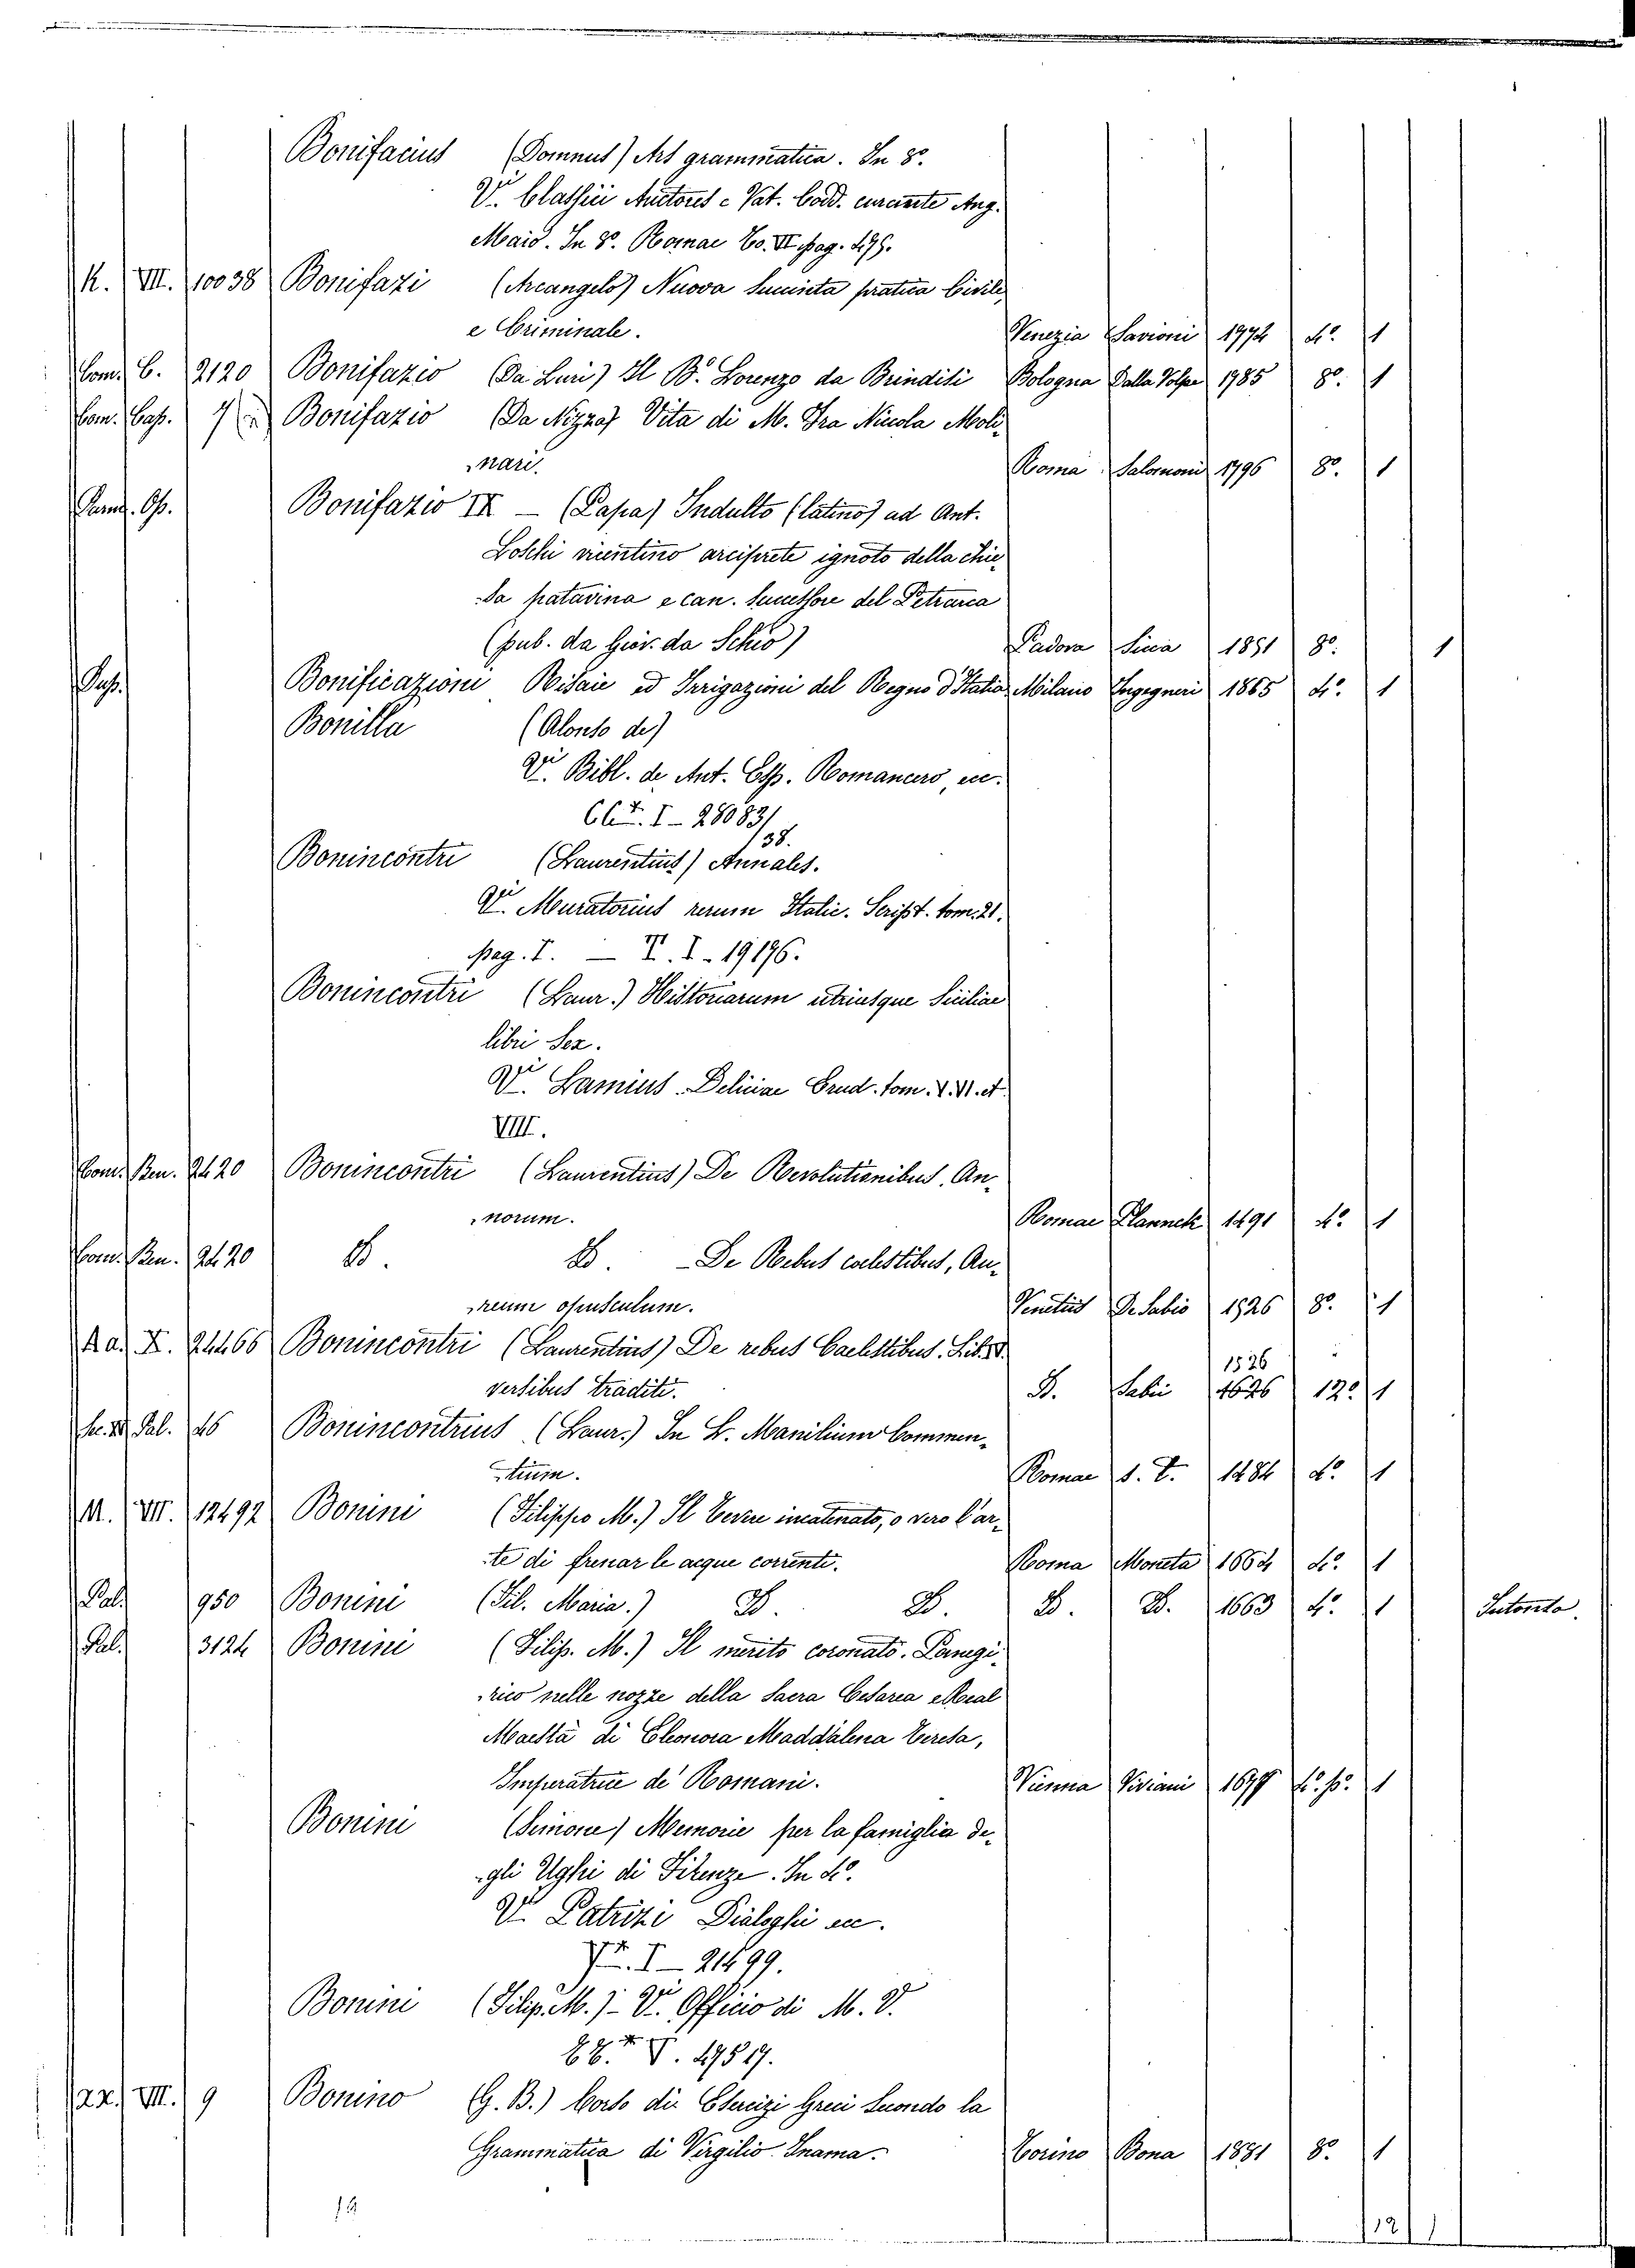 Bonifacius (Domnus) Ars grammatica. In 8º.
Vi. Classici Auctores e Vat. Codd. curante Ang.
Maio. In 8º. Romae To. VI pag. 475.
K. VIII. 10038 Bonifazi (Arcangelo) Nuova succinta pratica Civile
e Criminale. Venezia Savioni 1774 4º. 1
Com. C. 2120 Bonifazio (Da Luri) Il B. Lorenzo da Brindisi Bologna Dalla Volpe 1785 8º. 1
Com. Cap. 7 Bonifazio (Da Nizza) Vita di M. Fra Nicola Moli-
nari. Roma Salomoni 1796 8º. 1
Bonifazio IX — (Papa) Indulto (latino) ad Ant.
Loschi vicentino arciprete ignoto della chie-
sa patavina e can. successore del Petrarca
(pub. da Giov. da Schio) Padova Sicca 1851 8º. 1
Cap. Bonificazioni Risaie ed Irrigazioni del Regno d'Italia Milano Ingegneri 1865 4º. 1
Bonilla (Alonso de)
Vi. Bibl. de Aut. Esp. Romancero, ec.
CC. I - 28083/38.
Bonincontri (Laurentius) Annales.
Vi. Muratorius rerum Italic. Script. tom. 21.
pag. I. — T. I - 19176.
Bonincontri (Laur.) Historiarum utriusque Siciliae
libri Sex.
Vi. Lamius Deliciae Erud. tom. V. VI. et
VIII.
Com. Ben. 2420 Bonincontri (Laurentius) De Revolutionibus An-
norum. Romae Plannck 1491 4º 1
Com. Ben. 2420 D. D. - De Rebus coelestibus, Au-
reum opusculum. Venetiis De Sabio 1526 8º. 1
Aa. X. 24466 Bonincontri (Laurentius) De rebus Caelestibus. Lib. V.
1526
versibus traditi. D. Sabii 1626 12º 1
Pal. 46 Bonincontrius (Laur.) In L. Manilium Commen-
tium. Romae s. T. 1484 4º 1
M. VIII. 12492 Bonini (Filippo M.) Il Tevere incatenato, o vero l'ar-
te di frenar le acque correnti. Roma Moneta 1664 4º. 1
Pal. 950 Bonini (Fil. Maria.) D. D. D. D. 1663 4º. 1 Intonso.
Pal. 3124 Bonini (Filip. M.) Il merito coronato. Panegi-
rico nelle nozze della Sacra Cesarea e Real
Maestà di Eleonora Maddalena Teresa,
Imperatrice de' Romani. Vienna Viviani 1677 4º. p. 1
Bonini (Simone) Memorie per la famiglia de-
gli Ughi di Firenze. In 4º.
Vi. Patrizi Dialoghi ec.
I - 21499.
Bonini (Filip. M.) - Vi. Officio di M. V.
V. 47517.
22. VIII. 9 Bonino (G. B.) Corso di Esercizi Greci secondo la
Grammatica di Virgilio Inama. Torino Bona 1881 8º 1
12
12 1